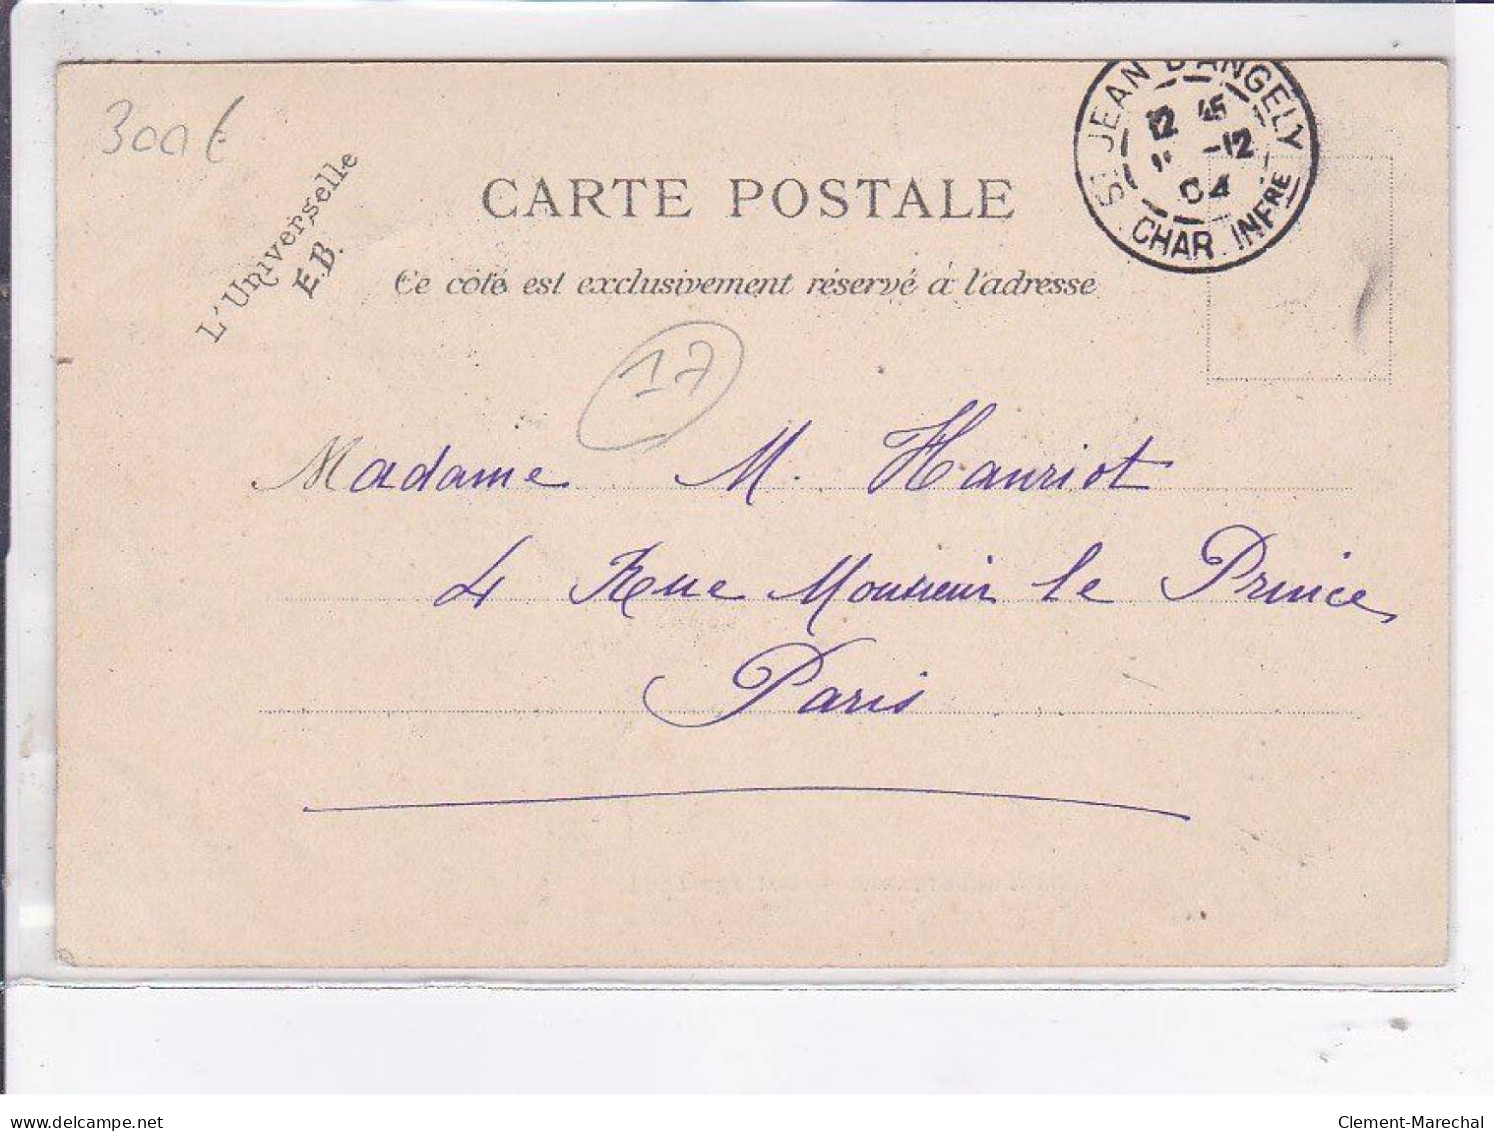 300€
L'Universelle
E.B.
CARTE POSTALE
Ce côté est exclusivement réservé à l'adresse
ST JEAN D'ANGELY
12 45
-12
04
CHAR. INFRE
17
Madame M. Hanriot
4 Rue Monsieur le Prince
Paris
www.delcampe.net
Clement-Marechal